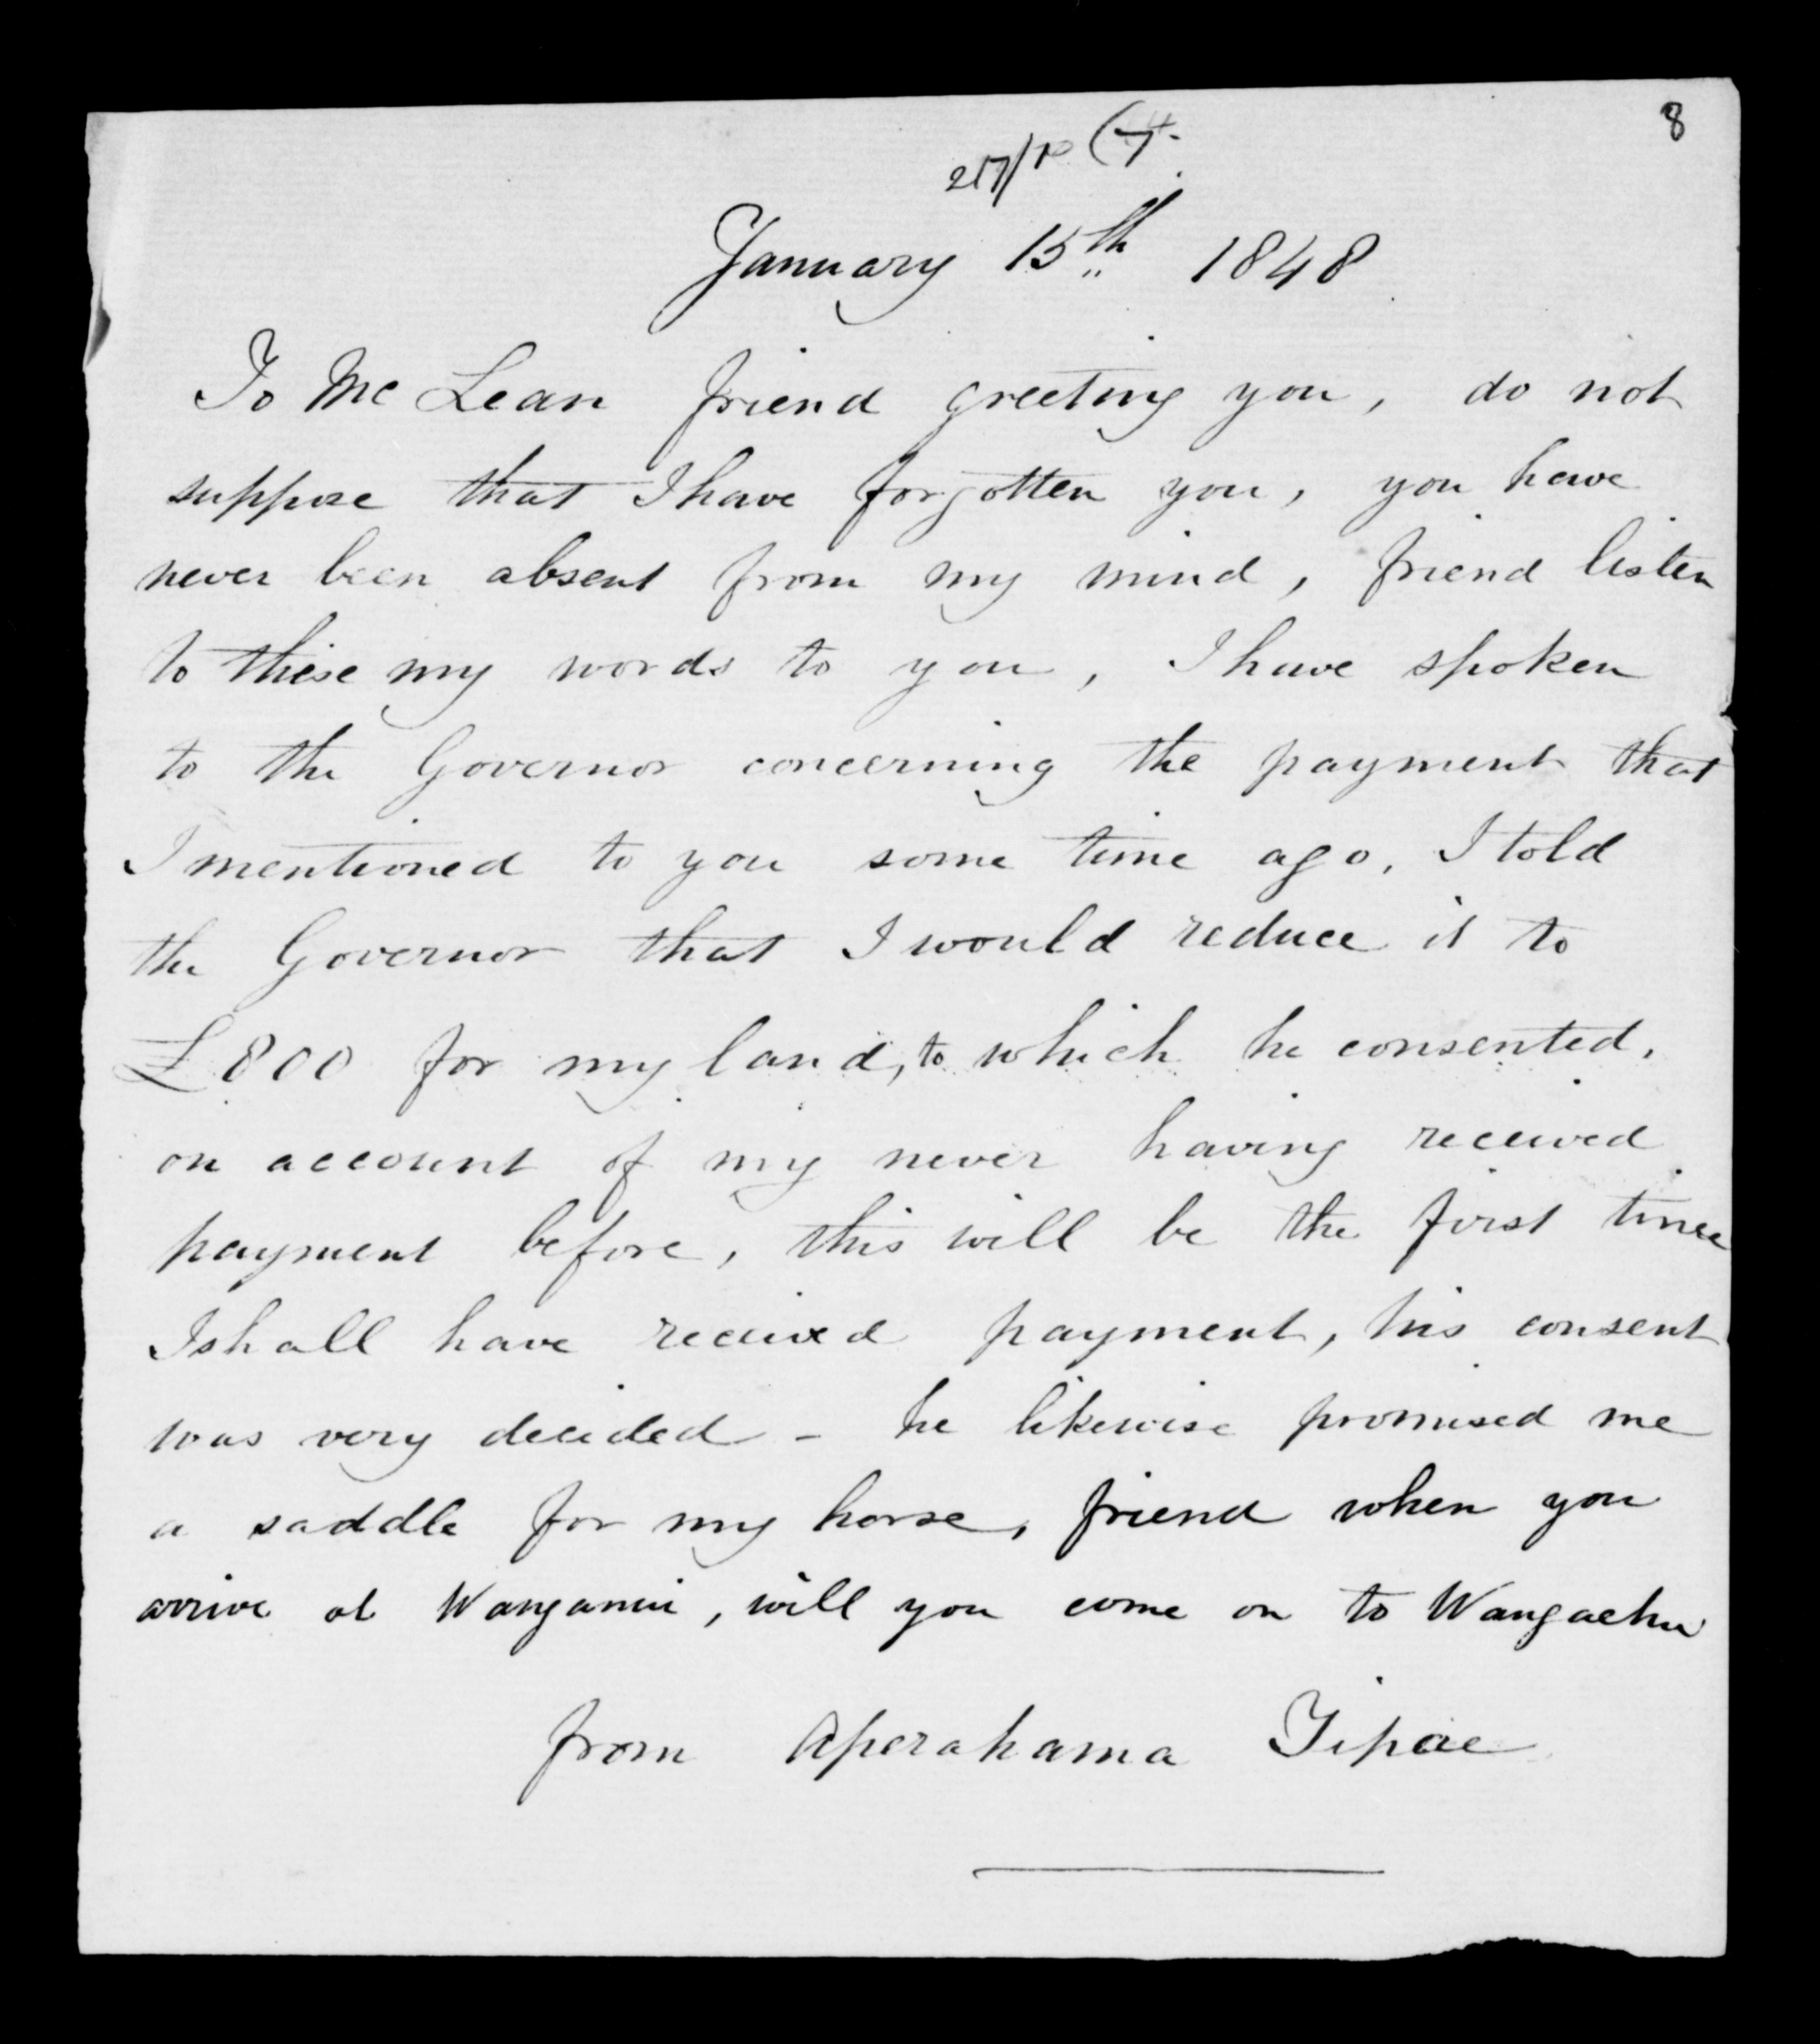 8
January 15th 1848
To McLean friend greeting you, do not
suppose that I have forgotten you, you have
never been absent from my mind, friend listen
to these my words to you, I have spoken
to the Governor concerning the payment that
I mentioned to you some time ago, I told
the Governor that I would reduce it to
£800 for my land, to which he consented,
on account of my never having received
payment before, this will be the first time
I shall have received payment, his consent
was very decided - he likewise promised me
a saddle for my horse, friend when you
arrive at Wanganui, will you come on to Wangaehu
from Aperahama Tipae